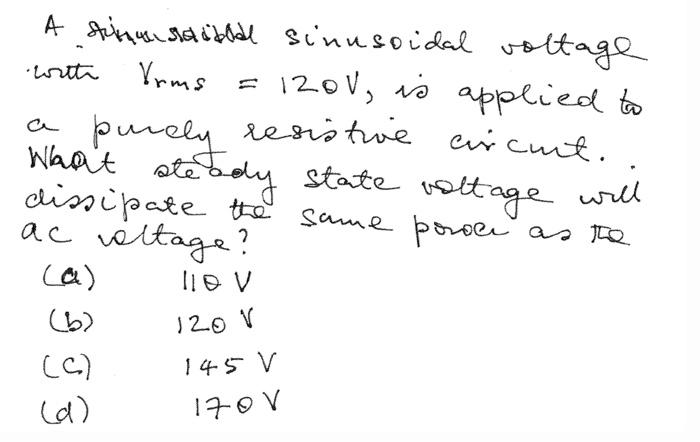 A sinusoidal voltage
with Vrms = 120V, is applied to
a purely resistive circuit.
What steady state voltage will
dissipate the same power as the
ac voltage?
(a) 110 V
(b) 120 V
(c) 145 V
(d) 170 V